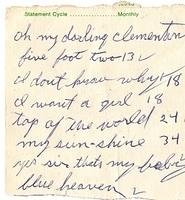 Statement Cycle Monthly
oh my darling clementin
five foot two-132
I dont know why-18
I want a girl 18
top of the world 24
my sun-shine 34
yes sir thats my baby
blue heaven 2